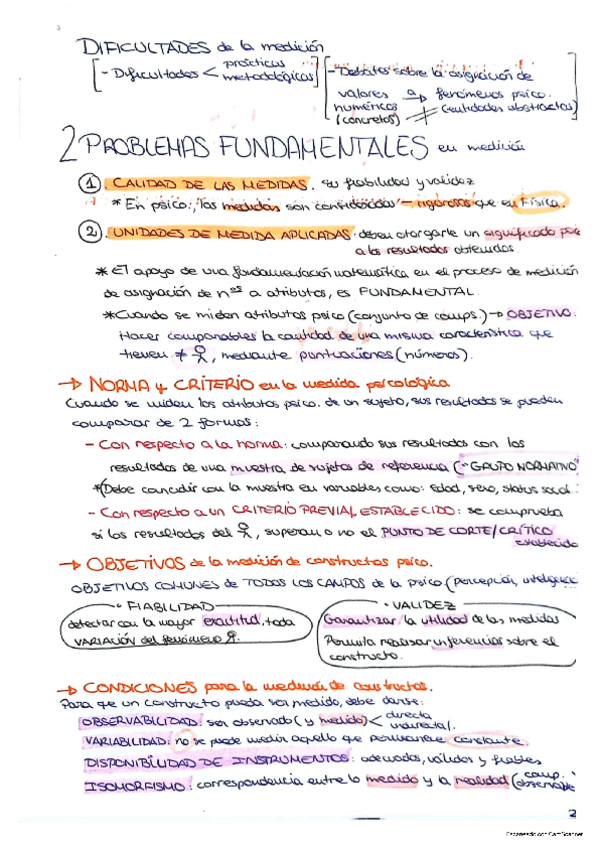 DIFICULTADES de la medición
- Dificultades < prácticas metodológicas
- Debates sobre la asignación de
valores a fenómenos psico.
numéricos (cantidades abstractas)
(concretos)
2 PROBLEMAS FUNDAMENTALES en medición
1. CALIDAD DE LAS MEDIDAS. su fiabilidad y validez
* En psico: las medidas son consideradas - rigurosas que en Física.
2. UNIDADES DE MEDIDA APLICADAS. deben otorgarle un significado psico
a los resultados obtenidos
* El apoyo de una fundamentación matemática en el proceso de medición
de asignación de nºs a atributos, es FUNDAMENTAL.
* Cuando se miden atributos psico (conjunto de comps.) → OBJETIVO:
Hacer comparables la cantidad de una misma característica que
tienen ≠, mediante puntuaciones (números).
→ NORMA y CRITERIO en la medida psicológica
Cuando se miden los atributos psico. de un sujeto, sus resultados se pueden
comparar de 2 formas:
- Con respecto a la norma: comparando sus resultados con los
resultados de una muestra de sujetos de referencia ("GRUPO NORMATIVO"
* (Debe coincidir con la muestra en variables como: Edad, sexo, status social.
- Con respecto a un CRITERIO PREVIAL ESTABLECIDO: se comprueba
si los resultados del, superan o no el PUNTO DE CORTE/CRÍTICO
establecido
→ OBJETIVOS de la medición de constructos psico.
OBJETIVOS COMUNES de TODOS LOS CAMPOS de la psico (percepción, inteligencia
· FIABILIDAD
detectar con la mayor exactitud, toda
VARIACIÓN del fenómeno
· VALIDEZ
Garantizar la utilidad de las medidas
Permite realizar inferencias sobre el
constructo.
→ CONDICIONES para la medición de constructos.
Para que un constructo pueda ser medido, debe darse:
OBSERVABILIDAD: ser observado (y medido) < directa indirecta/.
VARIABILIDAD: no se puede medir aquello que permanece constante.
DISPONIBILIDAD DE INSTRUMENTOS: adecuados, válidos y fiables
ISOMORFISMO: correspondencia entre lo medido y la realidad (comp. observable
2
Escaneado con CamScanner